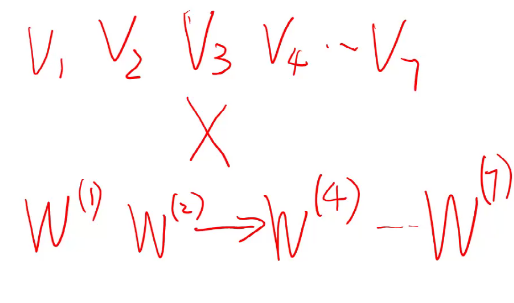 V₁ V₂ V₃ V₄ ... V₇
X
W⁽¹⁾ W⁽²⁾ → W⁽⁴⁾ --- W⁽⁷⁾